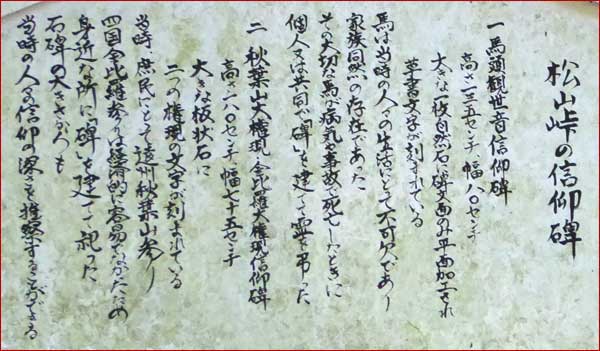 松山峠の信仰碑
一 馬頭観世音信仰碑
高さ一三五センチ 幅八〇センチ
大きな板自然石に碑文面のみ平面加工され
草書文字が刻まれている
馬は当時の人々の生活にとって不可欠であり
家族同然の存在であった
その大切な馬が病気や事故で死亡したときに
個人又は共同で碑を建てて霊を弔った
二 秋葉山大権現・金比羅大権現信仰碑
高さ一八〇センチ 幅七十五センチ
大きな板状石に
二つの権現の文字が刻まれている
当時、庶民にとって遠州秋葉山参り
四国金比羅参りは経済的に容易でなかったため
身近な所に「碑」を建てて祀った
石碑の大きさからも
当時の人々の信仰の深さを推察することができる